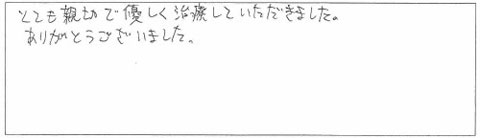 とても親切で優しく治療していただきました。
ありがとうございました。